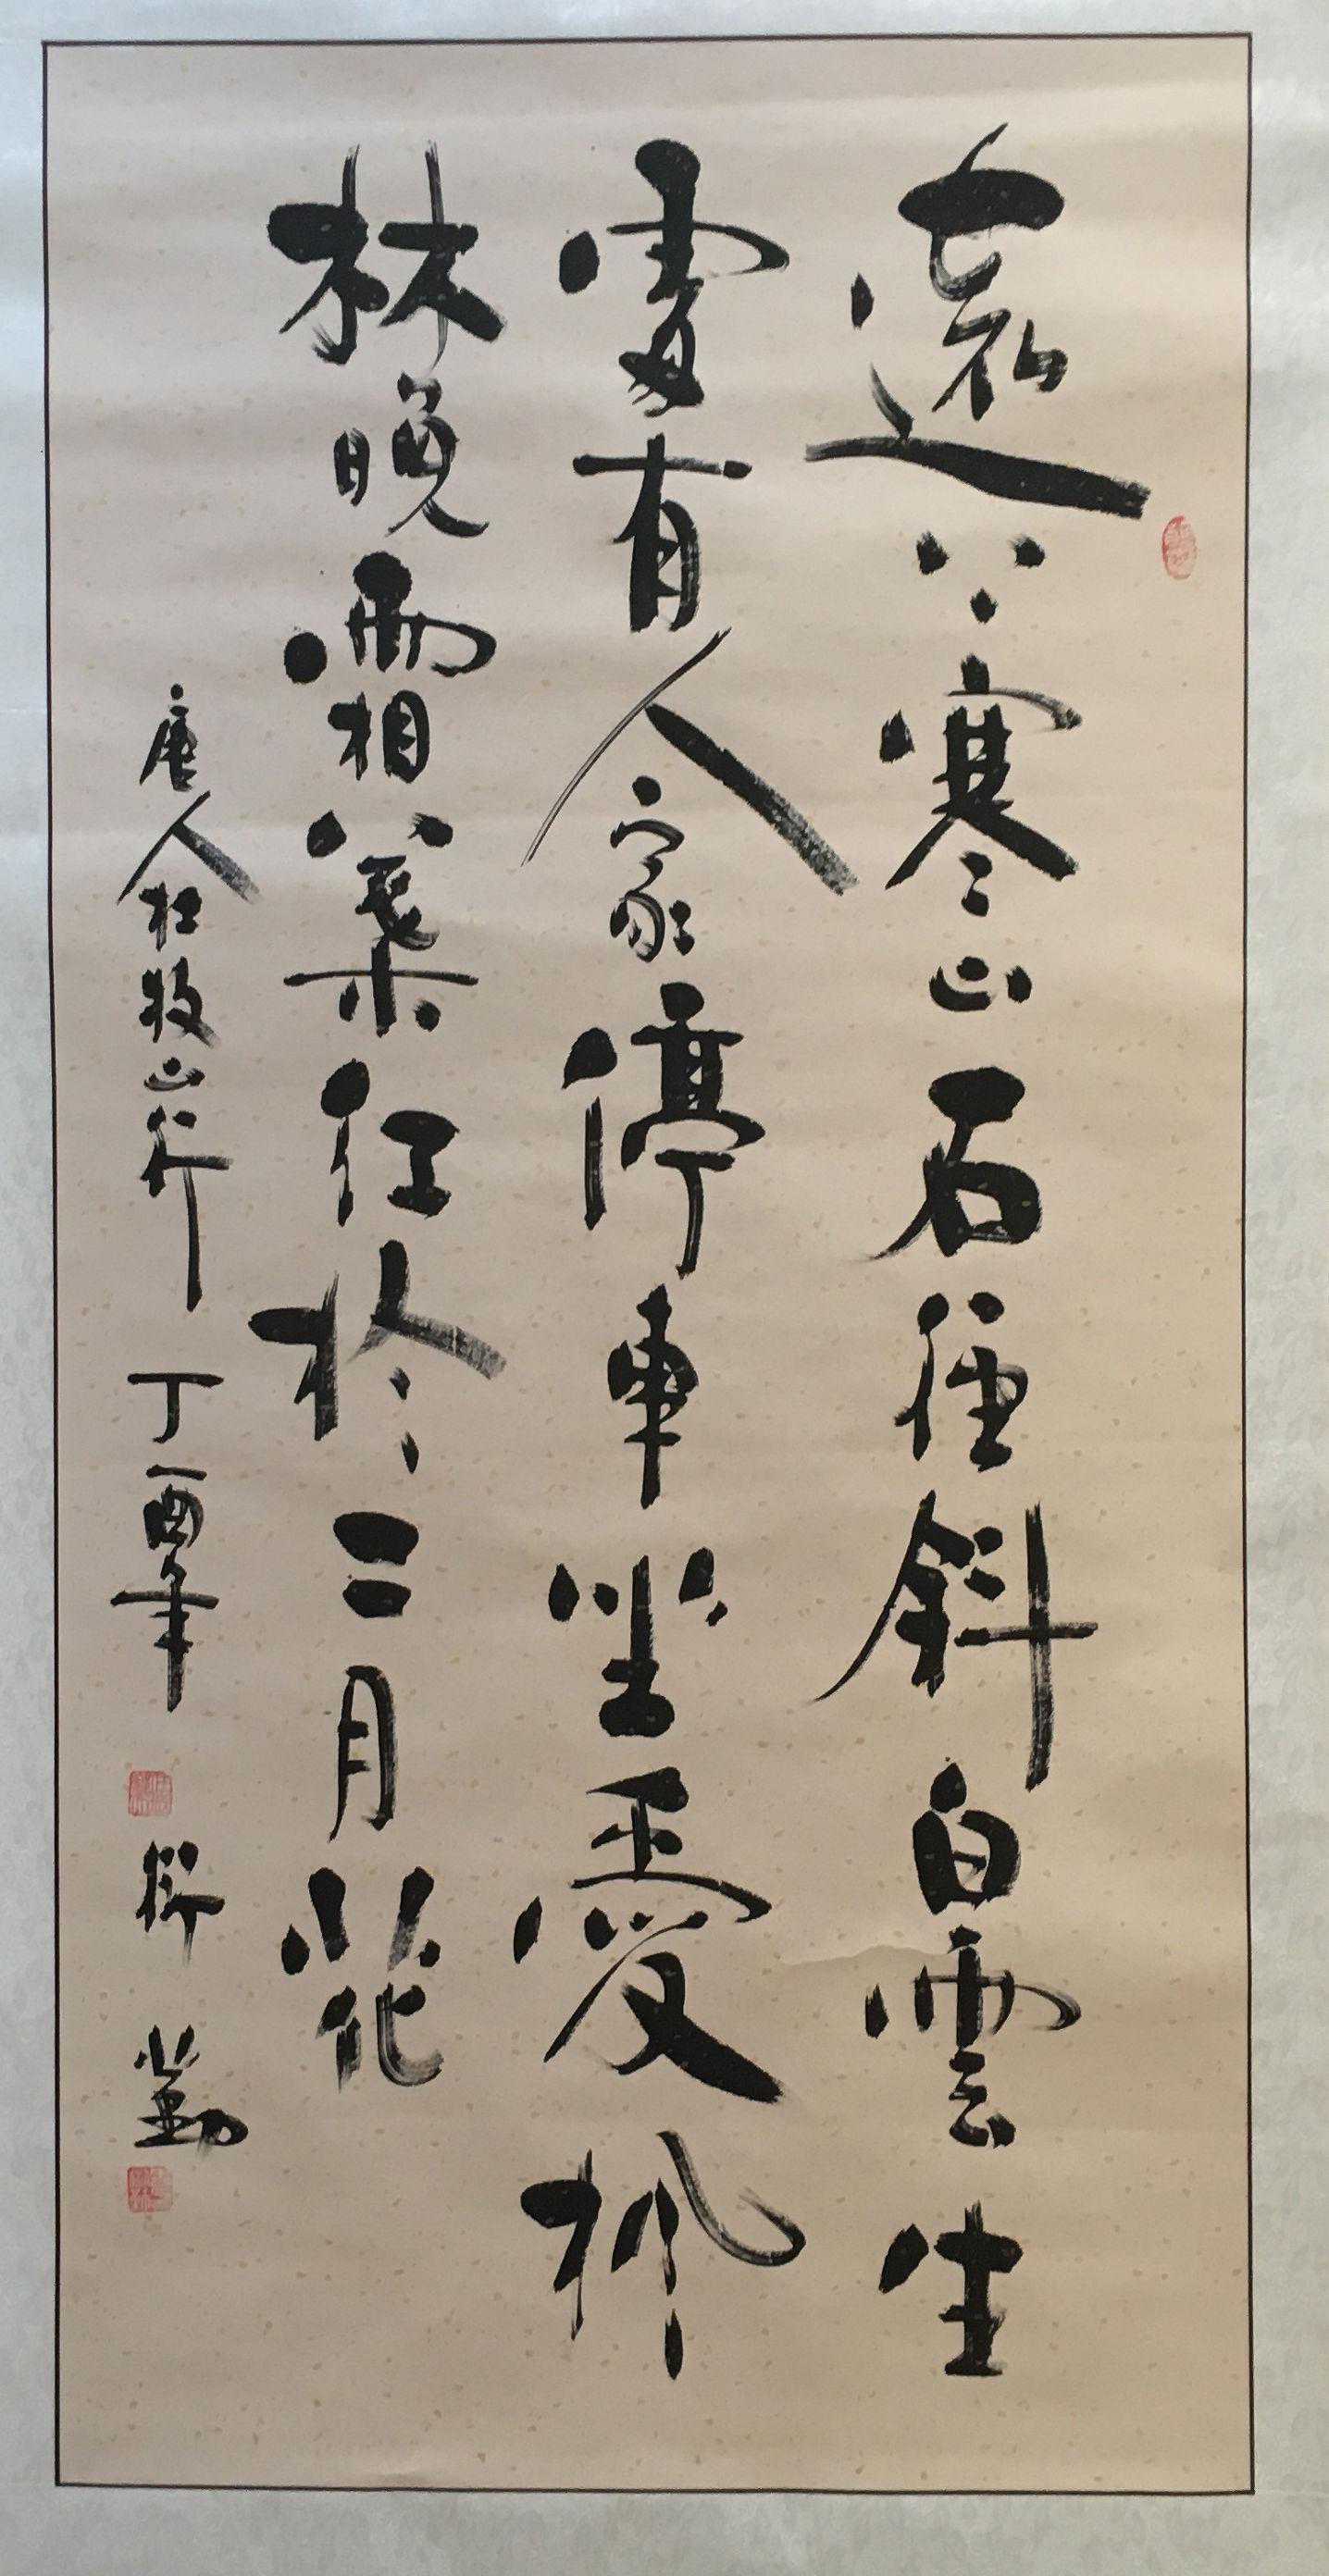 遠上寒山石徑斜白雲生
處有人家停車坐愛楓
林晚霜葉紅於二月花
唐人杜牧山行 丁酉年